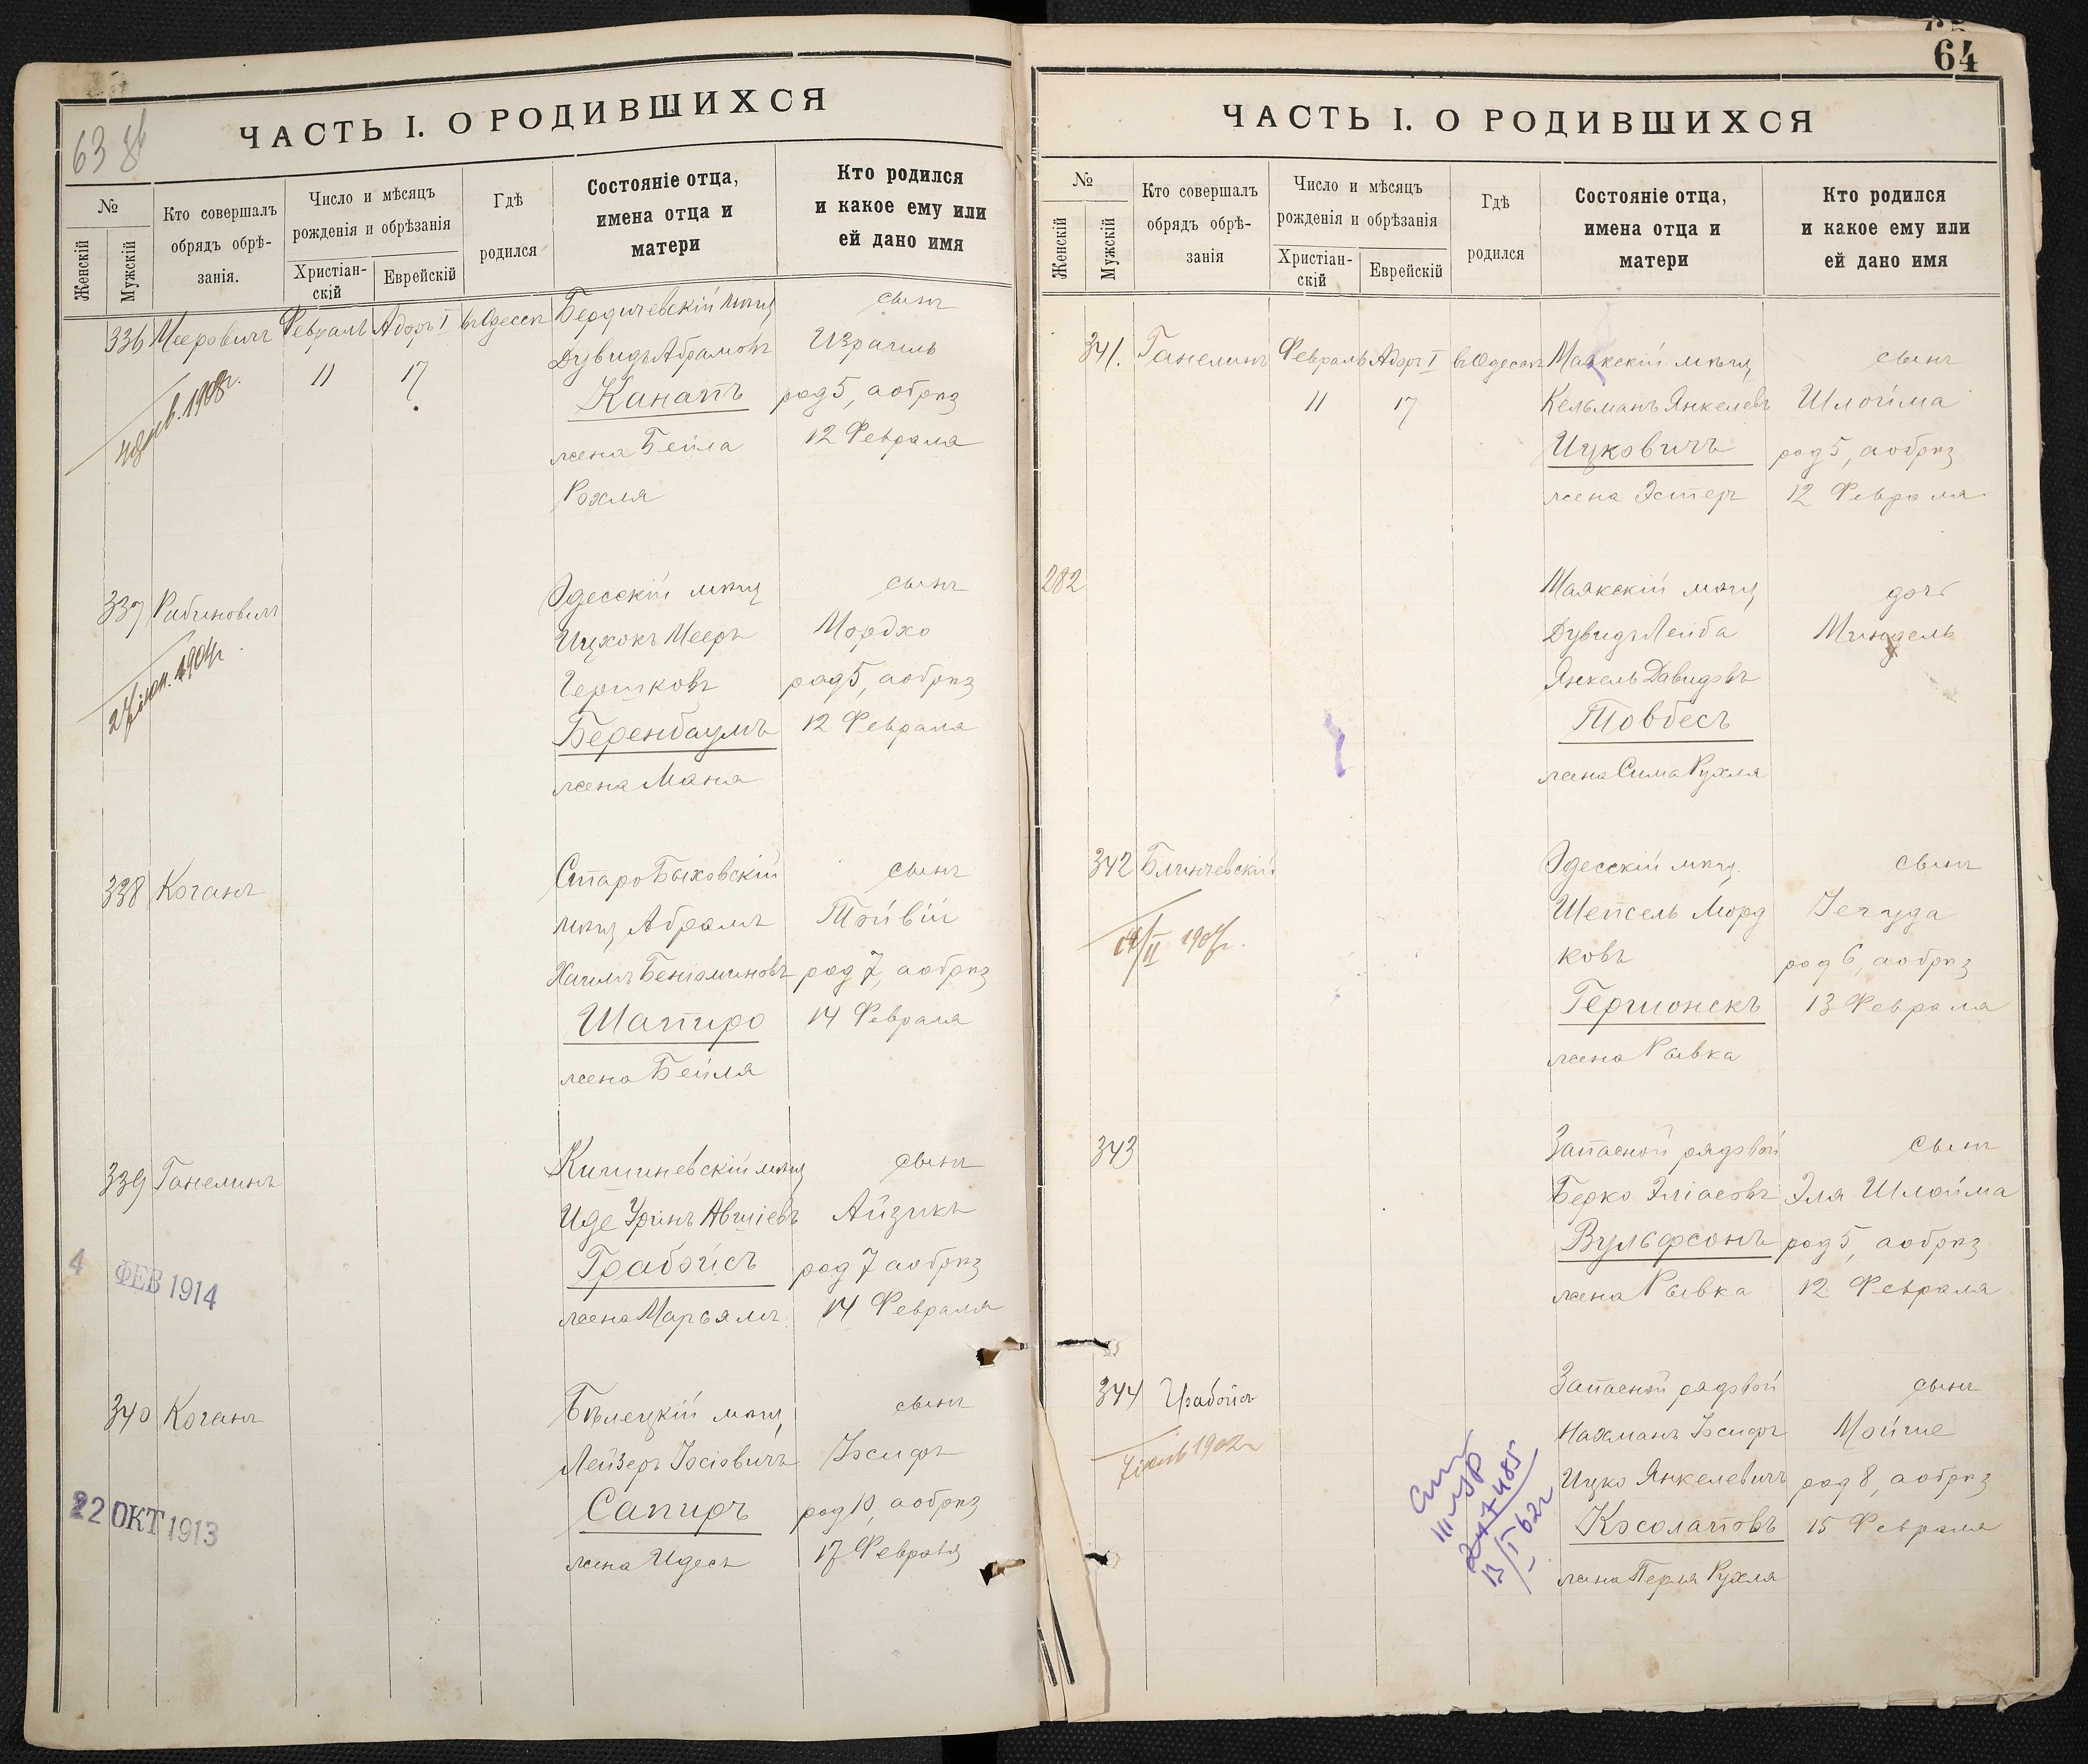 63 об
ЧАСТЬ I. О РОДИВШИХСЯ
№
Женскій
Мужскій
Кто совершалъ
обрядъ обрѣ-
занія.
Число и мѣсяцъ
рожденія и обрѣзанія
Христіан-
скій
Еврейскій
Гдѣ
родился
Состояніе отца,
имена отца и
матери
Кто родился
и какое ему или
ей дано имя
336 Мееровичъ Февраль Адоръ I въ Одессѣ Бердичевскій мѣщ сынъ
11 17 Дувидъ Абрамовъ Израиль
Канатъ род 5, а обрѣз
жена Бейла 12 Февраля
Рохля
1908г.
337 Рабиновичъ Одесскій мѣщ сынъ
Ицхокъ Мееръ Мордхо
Гершковъ род 5, а обрѣз
Беренбаумъ 12 Февраля
жена Маня
338 Коганъ СтароБыховскій сынъ
мѣщ Абрамъ Тойвій
Хаимъ Беніоминовъ род 7, а обрѣз
Шапиро 14 Февраля
жена Бейля
339 Ганелинъ Кишиневскій мѣщ сынъ
Иде Уринъ Авшіевъ Айзикъ
Грабойсъ род 7 а обрѣз
жена Марьямъ 14 Февраля
4 ФЕВ 1914
340 Коганъ Бѣлецкій мѣщ сынъ
Лейзеръ Іосіовичъ Іосифъ
Сапиръ род 10, а обрѣз
жена Идесъ 17 Февраля
22 ОКТ 1913
64
ЧАСТЬ I. О РОДИВШИХСЯ
№
Женскій
Мужскій
Кто совершалъ
обрядъ обрѣ-
занія
Число и мѣсяцъ
рожденія и обрѣзанія
Христіан-
скій
Еврейскій
Гдѣ
родился
Состояніе отца,
имена отца и
матери
Кто родился
и какое ему или
ей дано имя
341. Ганелинъ Февраль Адоръ I въ Одессѣ Маякскій мѣщ сынъ
11 17 Кельманъ Янкелевъ Шлойма
Ицковичъ род 5, а обрѣз
жена Эстеръ 12 Февраля
282 Маякскій мѣщ дочь
Дувидъ Лейба Миндель
Янкель Давидовъ
Товбесъ
жена Сима Рухля
342 Блинчевскій Одесскій мѣщ. сынъ
Шепсель Морд Іегуда
ковъ род 6, а обрѣз
Гершонекъ 13 Февраля
жена Рывка
343 Запасной рядовой сынъ
Берко Эліасовъ Эля Шлойма
Вульфсонъ род 5, а обрѣз
жена Рывка 12 Февраля
344 Грабойсъ Запасной рядовой сынъ
Нахманъ Іосифъ Мойше
Ицко Янкелевичъ род 8, а обрѣз
Косолаповъ 15 Февраля
жена Перля Рухля